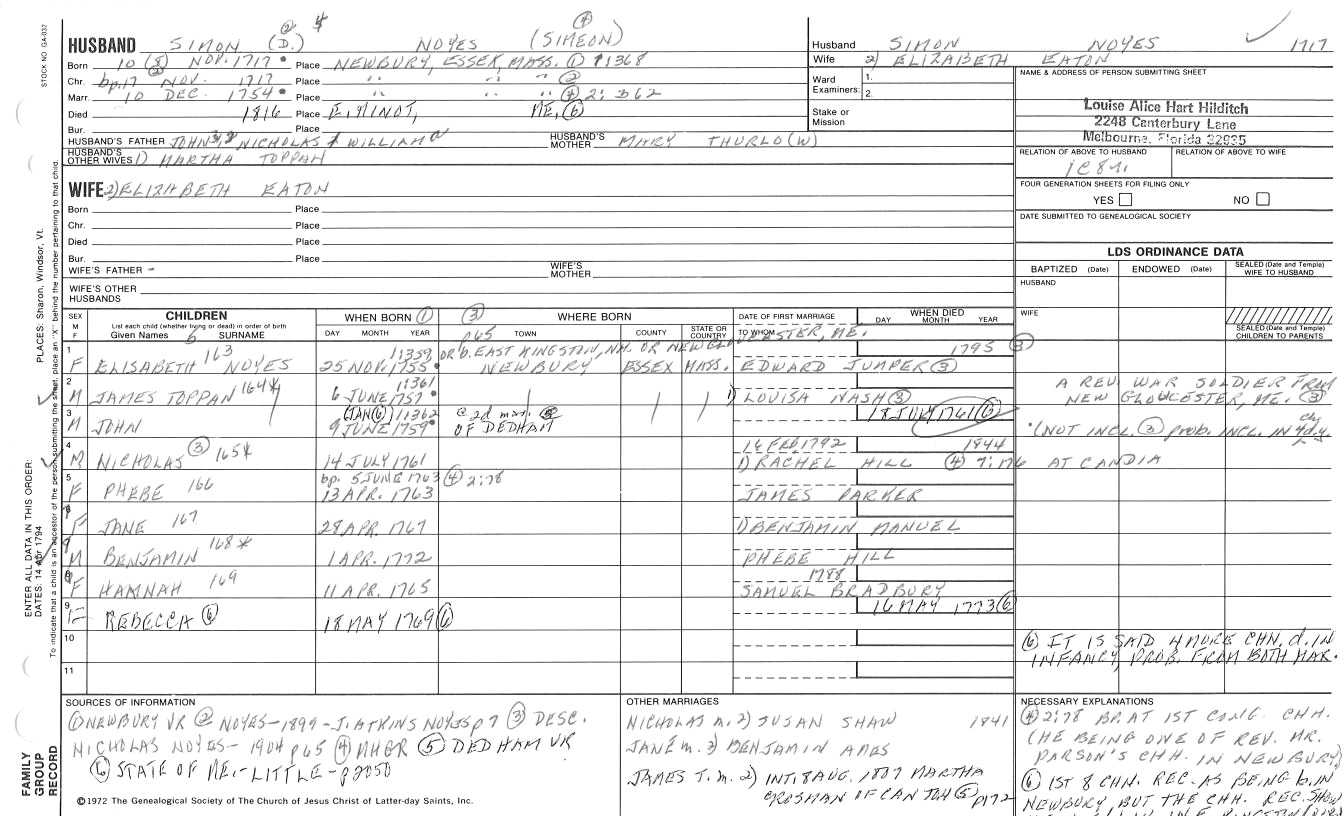 STOCK NO. GA-037
HUSBAND SIMON (D.) ② 4 NOYES (SIMEON) ④
Born 10 (8) NOV. 1717 • Place NEWBURY, ESSEX, MASS. ① 11368
Chr. bp.17 ② NOV. 1717 Place " " " ②
Marr. 10 DEC. 1754 • Place " " " ④ 2: 362
Died 1816 Place E. MINOT, ME, ⑥
Bur. Place
HUSBAND'S FATHER JOHN 3,2 NICHOLAS 1 WILLIAM HUSBAND'S MOTHER MARY THURLO(W)
HUSBAND'S OTHER WIVES 1) MARTHA TOPPAN
Husband SIMON NOYES 1717
Wife 2) ELIZABETH EATON
Ward Examiners: 1. 2.
Stake or Mission
NAME & ADDRESS OF PERSON SUBMITTING SHEET
Louise Alice Hart Hilditch
2248 Canterbury Lane
Melbourne, Florida 32935
RELATION OF ABOVE TO HUSBAND RELATION OF ABOVE TO WIFE
FOUR GENERATION SHEETS FOR FILING ONLY
YES NO
DATE SUBMITTED TO GENEALOGICAL SOCIETY
WIFE 2) ELIZABETH EATON
Born Place
Chr. Place
Died Place
Bur. Place
WIFE'S FATHER - WIFE'S MOTHER
WIFE'S OTHER HUSBANDS
LDS ORDINANCE DATA
BAPTIZED (Date) ENDOWED (Date) SEALED (Date and Temple) WIFE TO HUSBAND
HUSBAND
WIFE
SEALED (Date and Temple) CHILDREN TO PARENTS
SEX M F
CHILDREN
List each child (whether living or dead) in order of birth
Given Names 5 SURNAME
WHEN BORN ①
DAY MONTH YEAR
③ p65 WHERE BORN
TOWN COUNTY STATE OR COUNTRY
DATE OF FIRST MARRIAGE
TO WHOM
WHEN DIED
DAY MONTH YEAR
F ELISABETH 163 NOYES 11359 25 NOV. 1755 • OR b. EAST KINGSTON, NH. OR NEW GLOUCESTER, ME. NEWBURY ESSEX MASS. EDWARD JUMPER ③ 1795 ③
2 M JAMES TOPPAN 164* 11361 6 JUNE 1757 1) LOUISA NASH ③ A REV. WAR SOLDIER FROM NEW GLOUCESTER, ME. ③
3 M JOHN (JAN ⑥) 11362 9 JUNE 1759 • @ 2d mar. OF DEDHAM 18 JULY 1761 ⑥ *(NOT INCL. ③ prob. INCL. IN
4 M NICHOLAS ③ 165* 14 JULY 1761 16 FEB 1792 1) RACHEL HILL ④ 7: 176 AT CANDIA 1844
5 F PHEBE 166 bp. 5 JUNE 1763 ④ 2:78 13 APR. 1763 JAMES PARKER
6 F JANE 167 28 APR. 1767 1) BENJAMIN MANUEL
7 M BENJAMIN 168* 1 APR. 1772 PHEBE HILL
8 F HAMNAH 169 11 APR. 1765 1788 SAMUEL BRADBURY
9 F REBECCA ⑥ 18 MAY 1769 ⑥ 16 MAY 1773 ⑥
10 ⑥ IT IS SAID 4 MORE CHN. d. IN INFANCY, PROB. FROM BOTH MAR.
11
SOURCES OF INFORMATION
① NEWBURY VR ② NOYES-1899-J. ATKINS NOYES p7 ③ DESC.
NICHOLAS NOYES-1904 p65 ④ NHGR ⑤ DEDHAM VR
⑥ STATE OF ME.-LITTLE-p2050
OTHER MARRIAGES
NICHOLAS m. 2) SUSAN SHAW 1841
JANE m. 2) BENJAMIN AMES
JAMES T. m. 2) INT. 18 AUG. 1807 MARTHA
CROSMAN OF CANTON ⑤ p172
NECESSARY EXPLANATIONS
④ 2:78 BP. AT 1ST CONG. CHH.
(HE BEING ONE OF REV. MR.
PARSON'S CHH. IN NEWBURY)
⑥ 1ST 8 CHN. REC. AS BEING b. IN
NEWBURY, BUT THE CHH. REC. SHOW
©1972 The Genealogical Society of The Church of Jesus Christ of Latter-day Saints, Inc.
FAMILY GROUP RECORD
ENTER ALL DATA IN THIS ORDER:
DATES: 14 Apr 1794
PLACES: Sharon, Windsor, Vt.
To indicate that a child is an ancestor of the person submitting the sheet, place an "X" behind the number pertaining to that child.